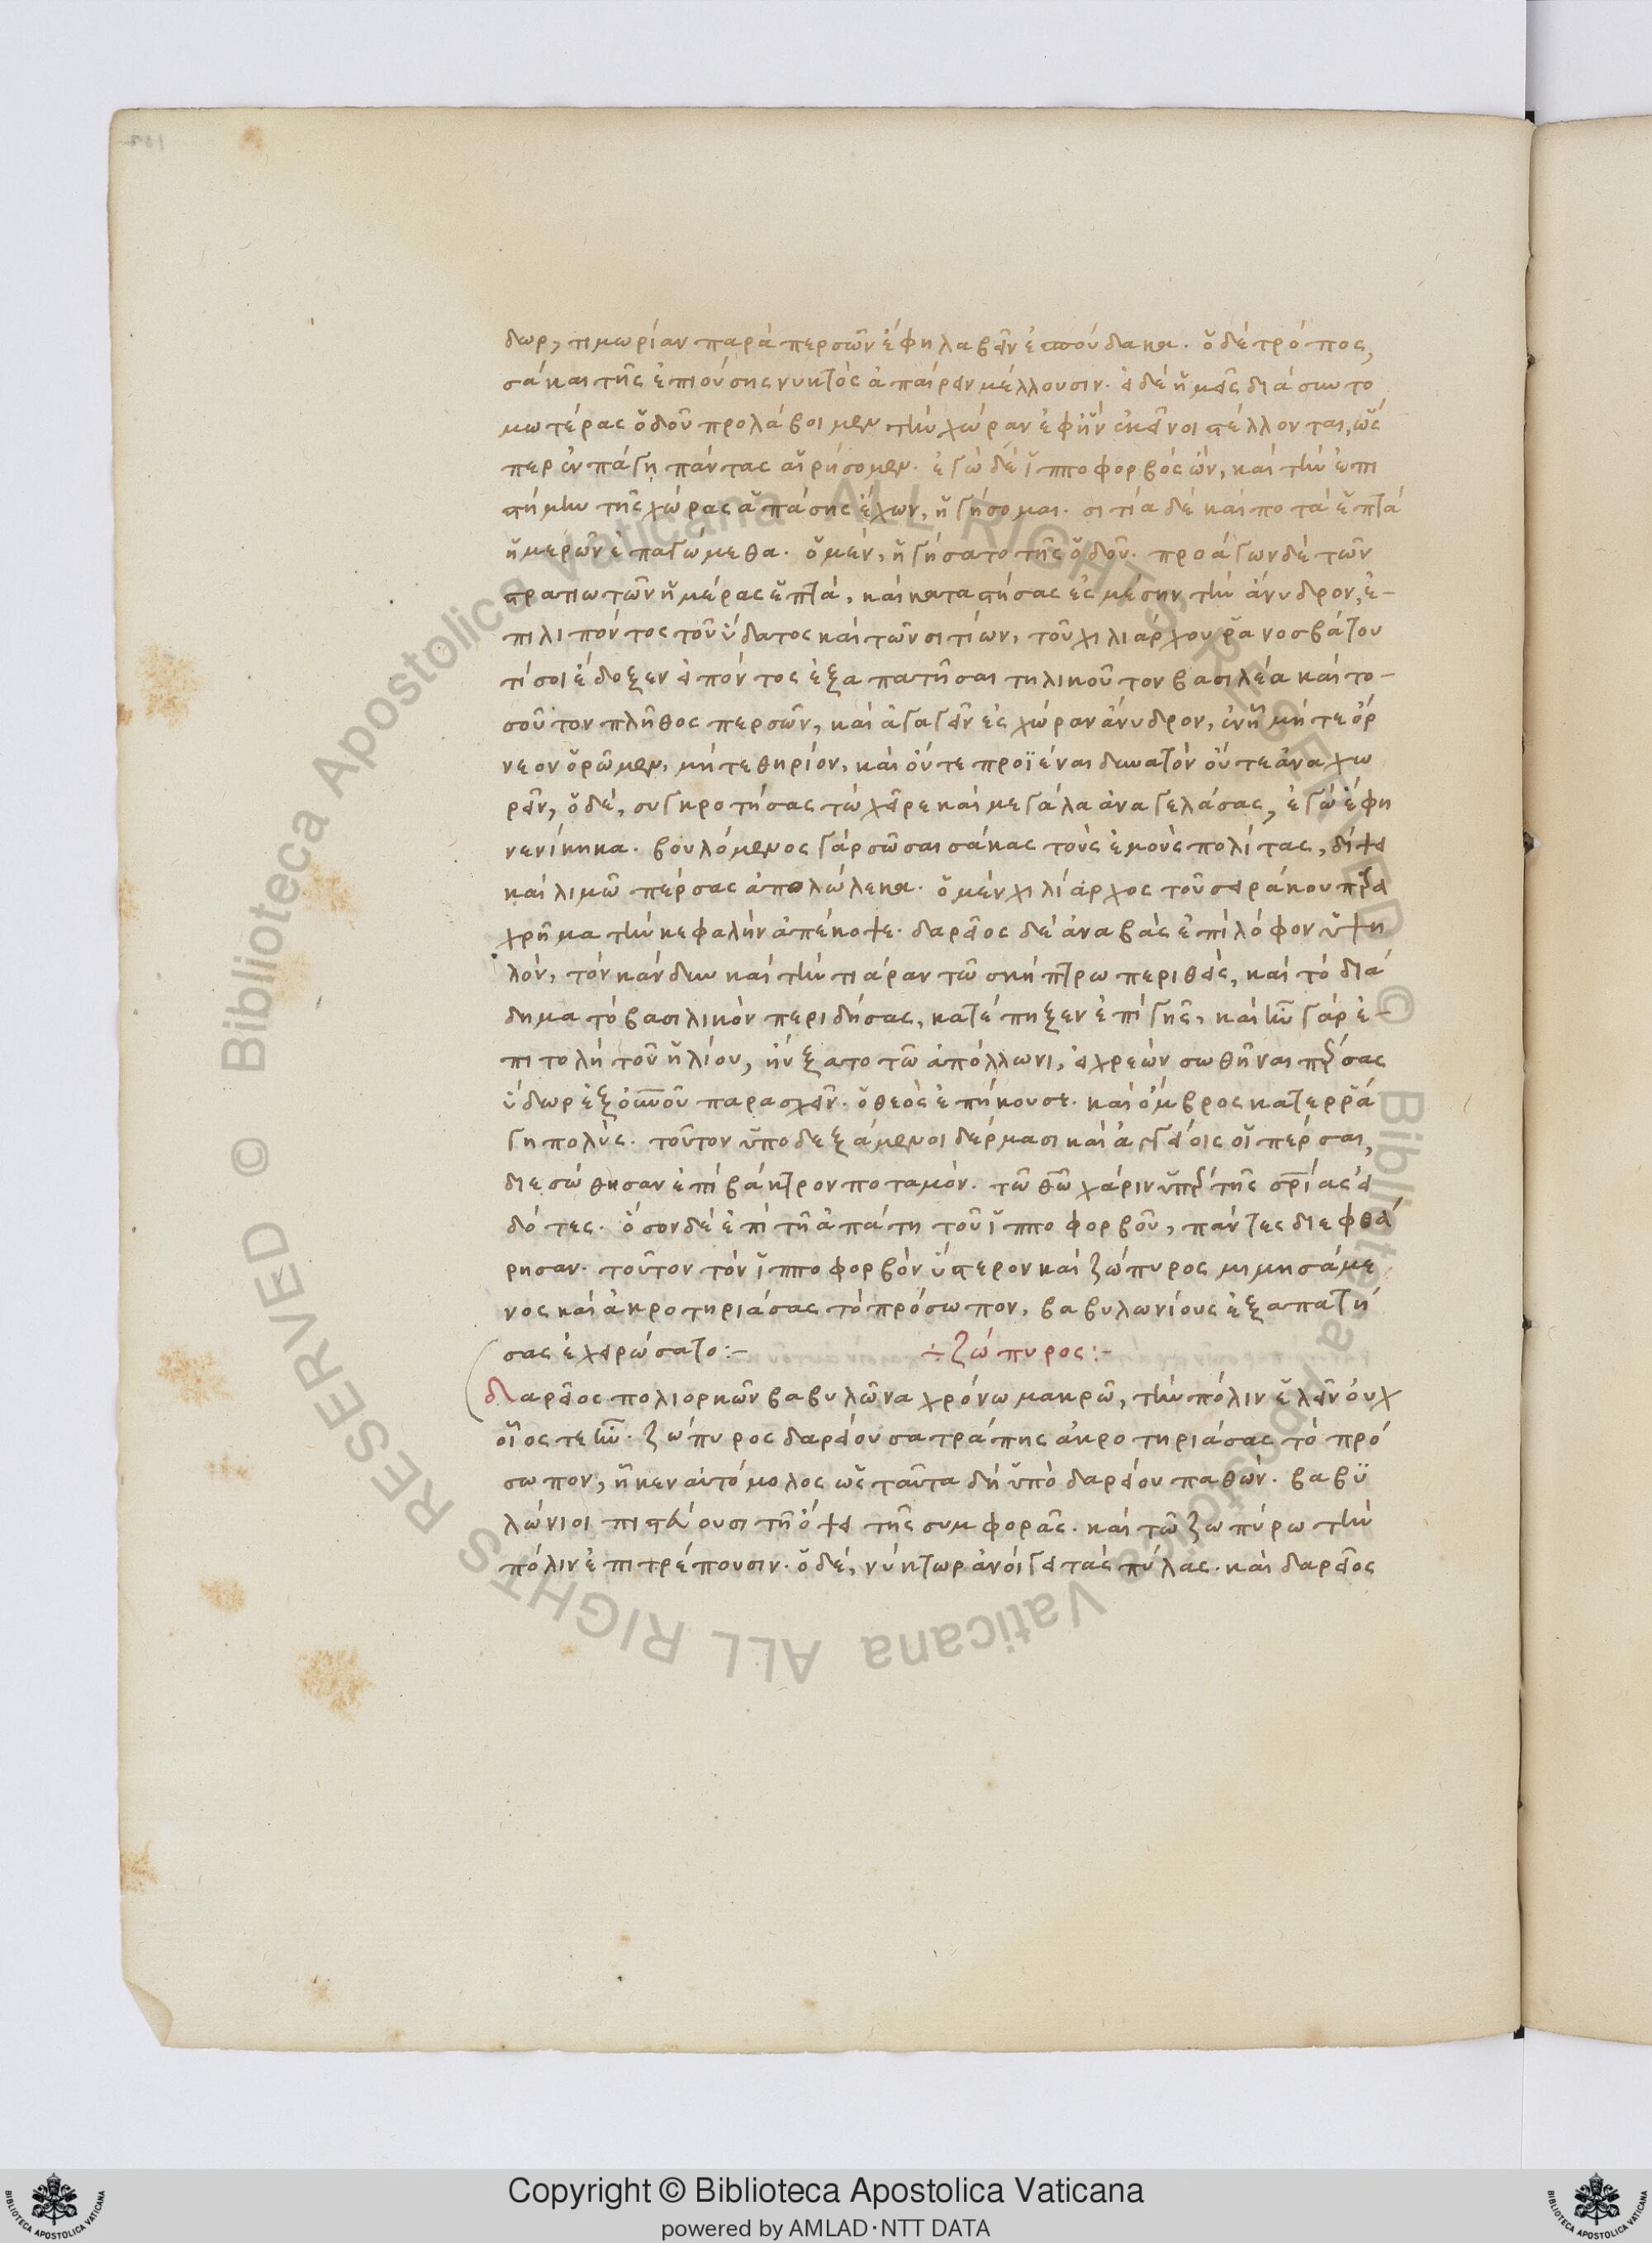 δωρ, τιμωρίαν παρὰ περσῶν ἔφη λαβεῖν ἐσπούδακα. ὁ δὲ τρόπος,
σάκαι τῆς ἐπιούσης νυκτὸς ἀπαίρειν μέλλουσιν. εἰ δὲ ἡμεῖς διὰ συντο
μωτέρας ὁδοῦ προλάβοιμεν τὴν χώραν ἐφ ἣν ἐκεῖνοι στέλλονται, ὥς
περ ἐν πάγη πάντας αἱρήσομεν. ἐγὼ δὲ ἱπποφορβός ὤν, καὶ τὴν ἐπι
στήμην τῆς χώρας ἁπάσης ἔχων, ἡγήσομαι. σιτία δὲ καὶ ποτὰ ἑπτὰ
ἡμερῶν ἐπαγώμεθα. ὁ μὲν, ἡγήσατο τῆς ὁδοῦ. προάγων δὲ τῶν
στρατιωτῶν ἡμέρας ἑπτά, καὶ καταστήσας ἐς μέσην τὴν ἄνυδρον, ἐ-
πιλιπόντος τοῦ ὕδατος καὶ τῶν σιτίων, τοῦ χιλιάρχου ῥανοσβάτου
τί σοι ἔδοξεν εἰπόντος ἐξαπατῆσαι τηλικοῦτον βασιλέα καὶ το-
σοῦτον πλῆθος περσῶν, καὶ ἀγαγεῖν ἐς χώραν ἄνυδρον, ἐν ἧ μήτε ὄρ
νεον ὁρῶμεν, μήτε θηρίον, καὶ οὔτε προϊέναι δυνατὸν οὔτε ἀναχω
ρεῖν, ὁ δὲ, συγκροτήσας τὼ χεῖρε καὶ μεγάλα ἀναγελάσας, ἐγὼ ἔφη
νενίκηκα. βουλόμενος γὰρ σῶσαι σάκας τοὺς ἐμοὺς πολίτας, δίψει
καὶ λιμῶ πέρσας ἀπολώλεκα. ὁ μὲν χιλίαρχος τοῦ σειράκου παρα
χρῆμα τὴν κεφαλὴν ἀπέκοψε. δαρεῖος δὲ ἀναβὰς ἐπὶ λόφον ὑψη
λόν, τὸν κάνδυν καὶ τὴν τιάραν τῶ σκήπτρω περιθεὶς, καὶ τὸ διά
δημα τὸ βασιλικὸν περιδήσας, κατέπηξεν ἐπὶ γῆς, καὶ ἦν γὰρ ἐ-
πιτολὴ τοῦ ἡλίου, ηὔξατο τῶ ἀπόλλωνι, εἰ χρεὼν σωθῆναι πέρσας
ὕδωρ ἐξ οὐνοῦ παρασχεῖν. ὁ θεὸς ἐπήκουσε. καὶ ὄμβρος κατερρά
γη πολύς. τοῦτον ὑποδεξάμενοι δέρμασι καὶ ἀγγείοις οἱ πέρσαι,
διεσώθησαν ἐπὶ βάκτρον ποταμόν. τῶ θῶ χάριν ὑπὲρ τῆς σρίας εἰ
δότες. ὅσον δὲ ἐπὶ τῆ ἀπάτη τοῦ ἱπποφορβοῦ, πάντες διεφθά
ρησαν. τοῦτον τὸν ἱπποφορβὸν ὕστερον καὶ ζώπυρος μιμησάμε
νος καὶ ἀκρωτηριάσας τὸ πρόσωπον, βαβυλωνίους ἐξαπατή
σας ἐχειρώσατο:- ÷ ζώπυρος:-
δαρεῖος πολιορκῶν βαβυλῶνα χρόνω μακρῶ, τὴν πόλιν ἑλεῖν οὐχ
οἷος τε ἦν. ζώπυρος δαρείου σατράπης ἀκροτηριάσας τὸ πρό
σωπον, ἧκεν αὐτόμολος ὡς ταῦτα δὴ ὑπὸ δαρείου παθών. βαβυ
λώνιοι πιστεύουσι τῆ ὄψει τῆς συμφορᾶς. καὶ τῶ ζωπύρω τὴν
πόλιν ἐπιτρέπουσιν. ὁ δὲ, νύκτωρ ἀνοίγει τὰς πύλας. καὶ δαρεῖος
Copyright © Biblioteca Apostolica Vaticana
powered by AMLAD·NTT DATA